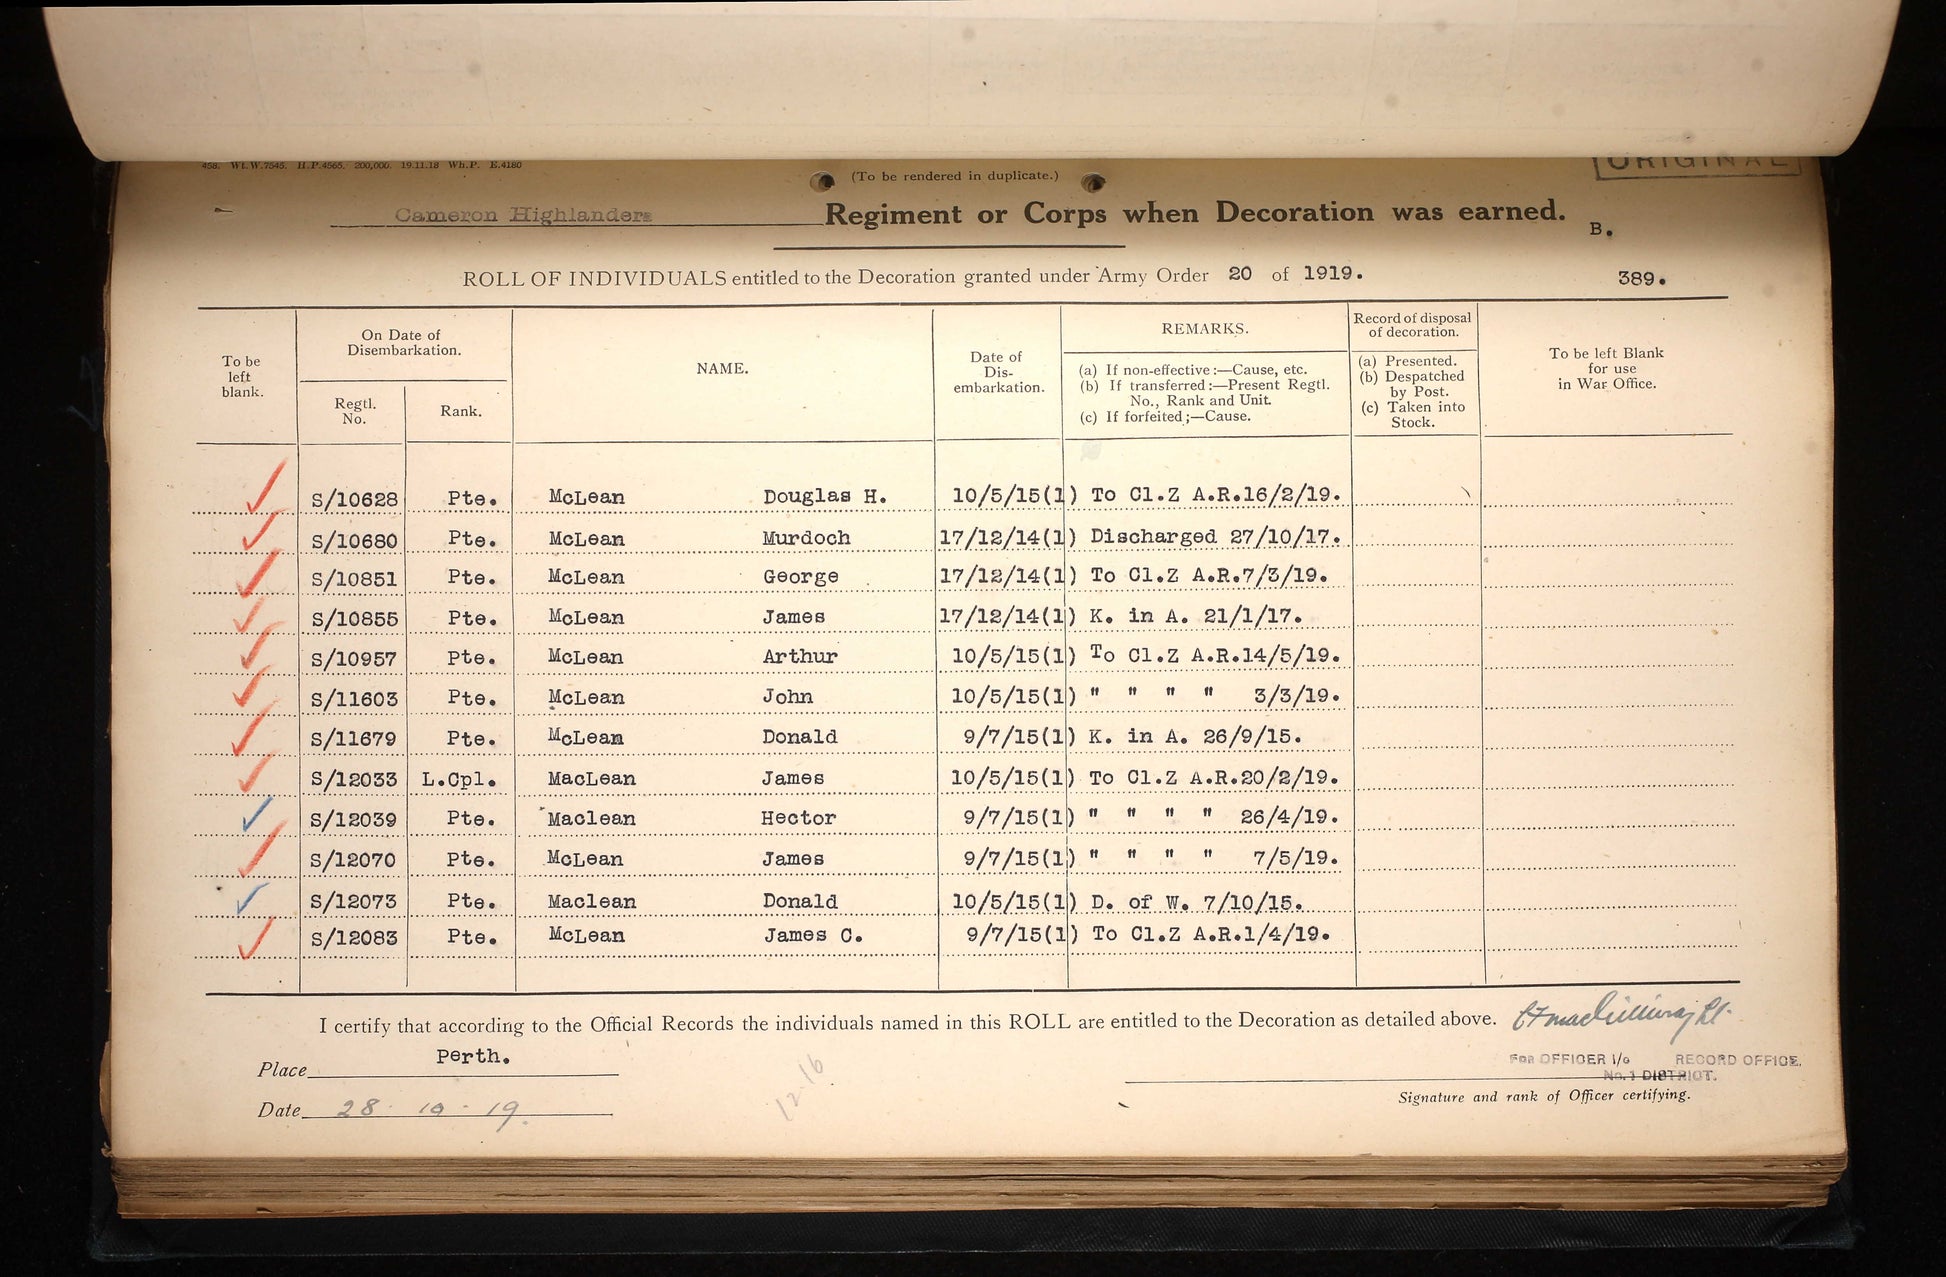 458. Wt.W.7545. H.P.4565. 200,000. 19.11.18 Wh.P. E.4180
(To be rendered in duplicate.)
ORIGINAL
Cameron Highlanders Regiment or Corps when Decoration was earned.
B.
ROLL OF INDIVIDUALS entitled to the Decoration granted under Army Order 20 of 1919.
389.
To be left blank.
On Date of Disembarkation.
Regtl. No.
Rank.
NAME.
Date of Dis-embarkation.
REMARKS.
(a) If non-effective:—Cause, etc.
(b) If transferred:—Present Regtl. No., Rank and Unit.
(c) If forfeited;—Cause.
Record of disposal of decoration.
(a) Presented.
(b) Despatched by Post.
(c) Taken into Stock.
To be left Blank for use in War Office.
S/10628 Pte. McLean Douglas H. 10/5/15(1) To Cl.Z A.R.16/2/19.
S/10680 Pte. McLean Murdoch 17/12/14(1) Discharged 27/10/17.
S/10851 Pte. McLean George 17/12/14(1) To Cl.Z A.R.7/3/19.
S/10855 Pte. McLean James 17/12/14(1) K. in A. 21/1/17.
S/10957 Pte. McLean Arthur 10/5/15(1) To Cl.Z A.R.14/5/19.
S/11603 Pte. McLean John 10/5/15(1) " " " " 3/3/19.
S/11679 Pte. McLean Donald 9/7/15(1) K. in A. 26/9/15.
S/12033 L.Cpl. MacLean James 10/5/15(1) To Cl.Z A.R.20/2/19.
S/12039 Pte. Maclean Hector 9/7/15(1) " " " " 26/4/19.
S/12070 Pte. McLean James 9/7/15(1) " " " " 7/5/19.
S/12073 Pte. Maclean Donald 10/5/15(1) D. of W. 7/10/15.
S/12083 Pte. McLean James C. 9/7/15(1) To Cl.Z A.R.1/4/19.
I certify that according to the Official Records the individuals named in this ROLL are entitled to the Decoration as detailed above.
Place Perth.
FOR OFFICER I/c RECORD OFFICE.
No. 1 DISTRICT.
Signature and rank of Officer certifying.
Date 28 · 10 · 19.